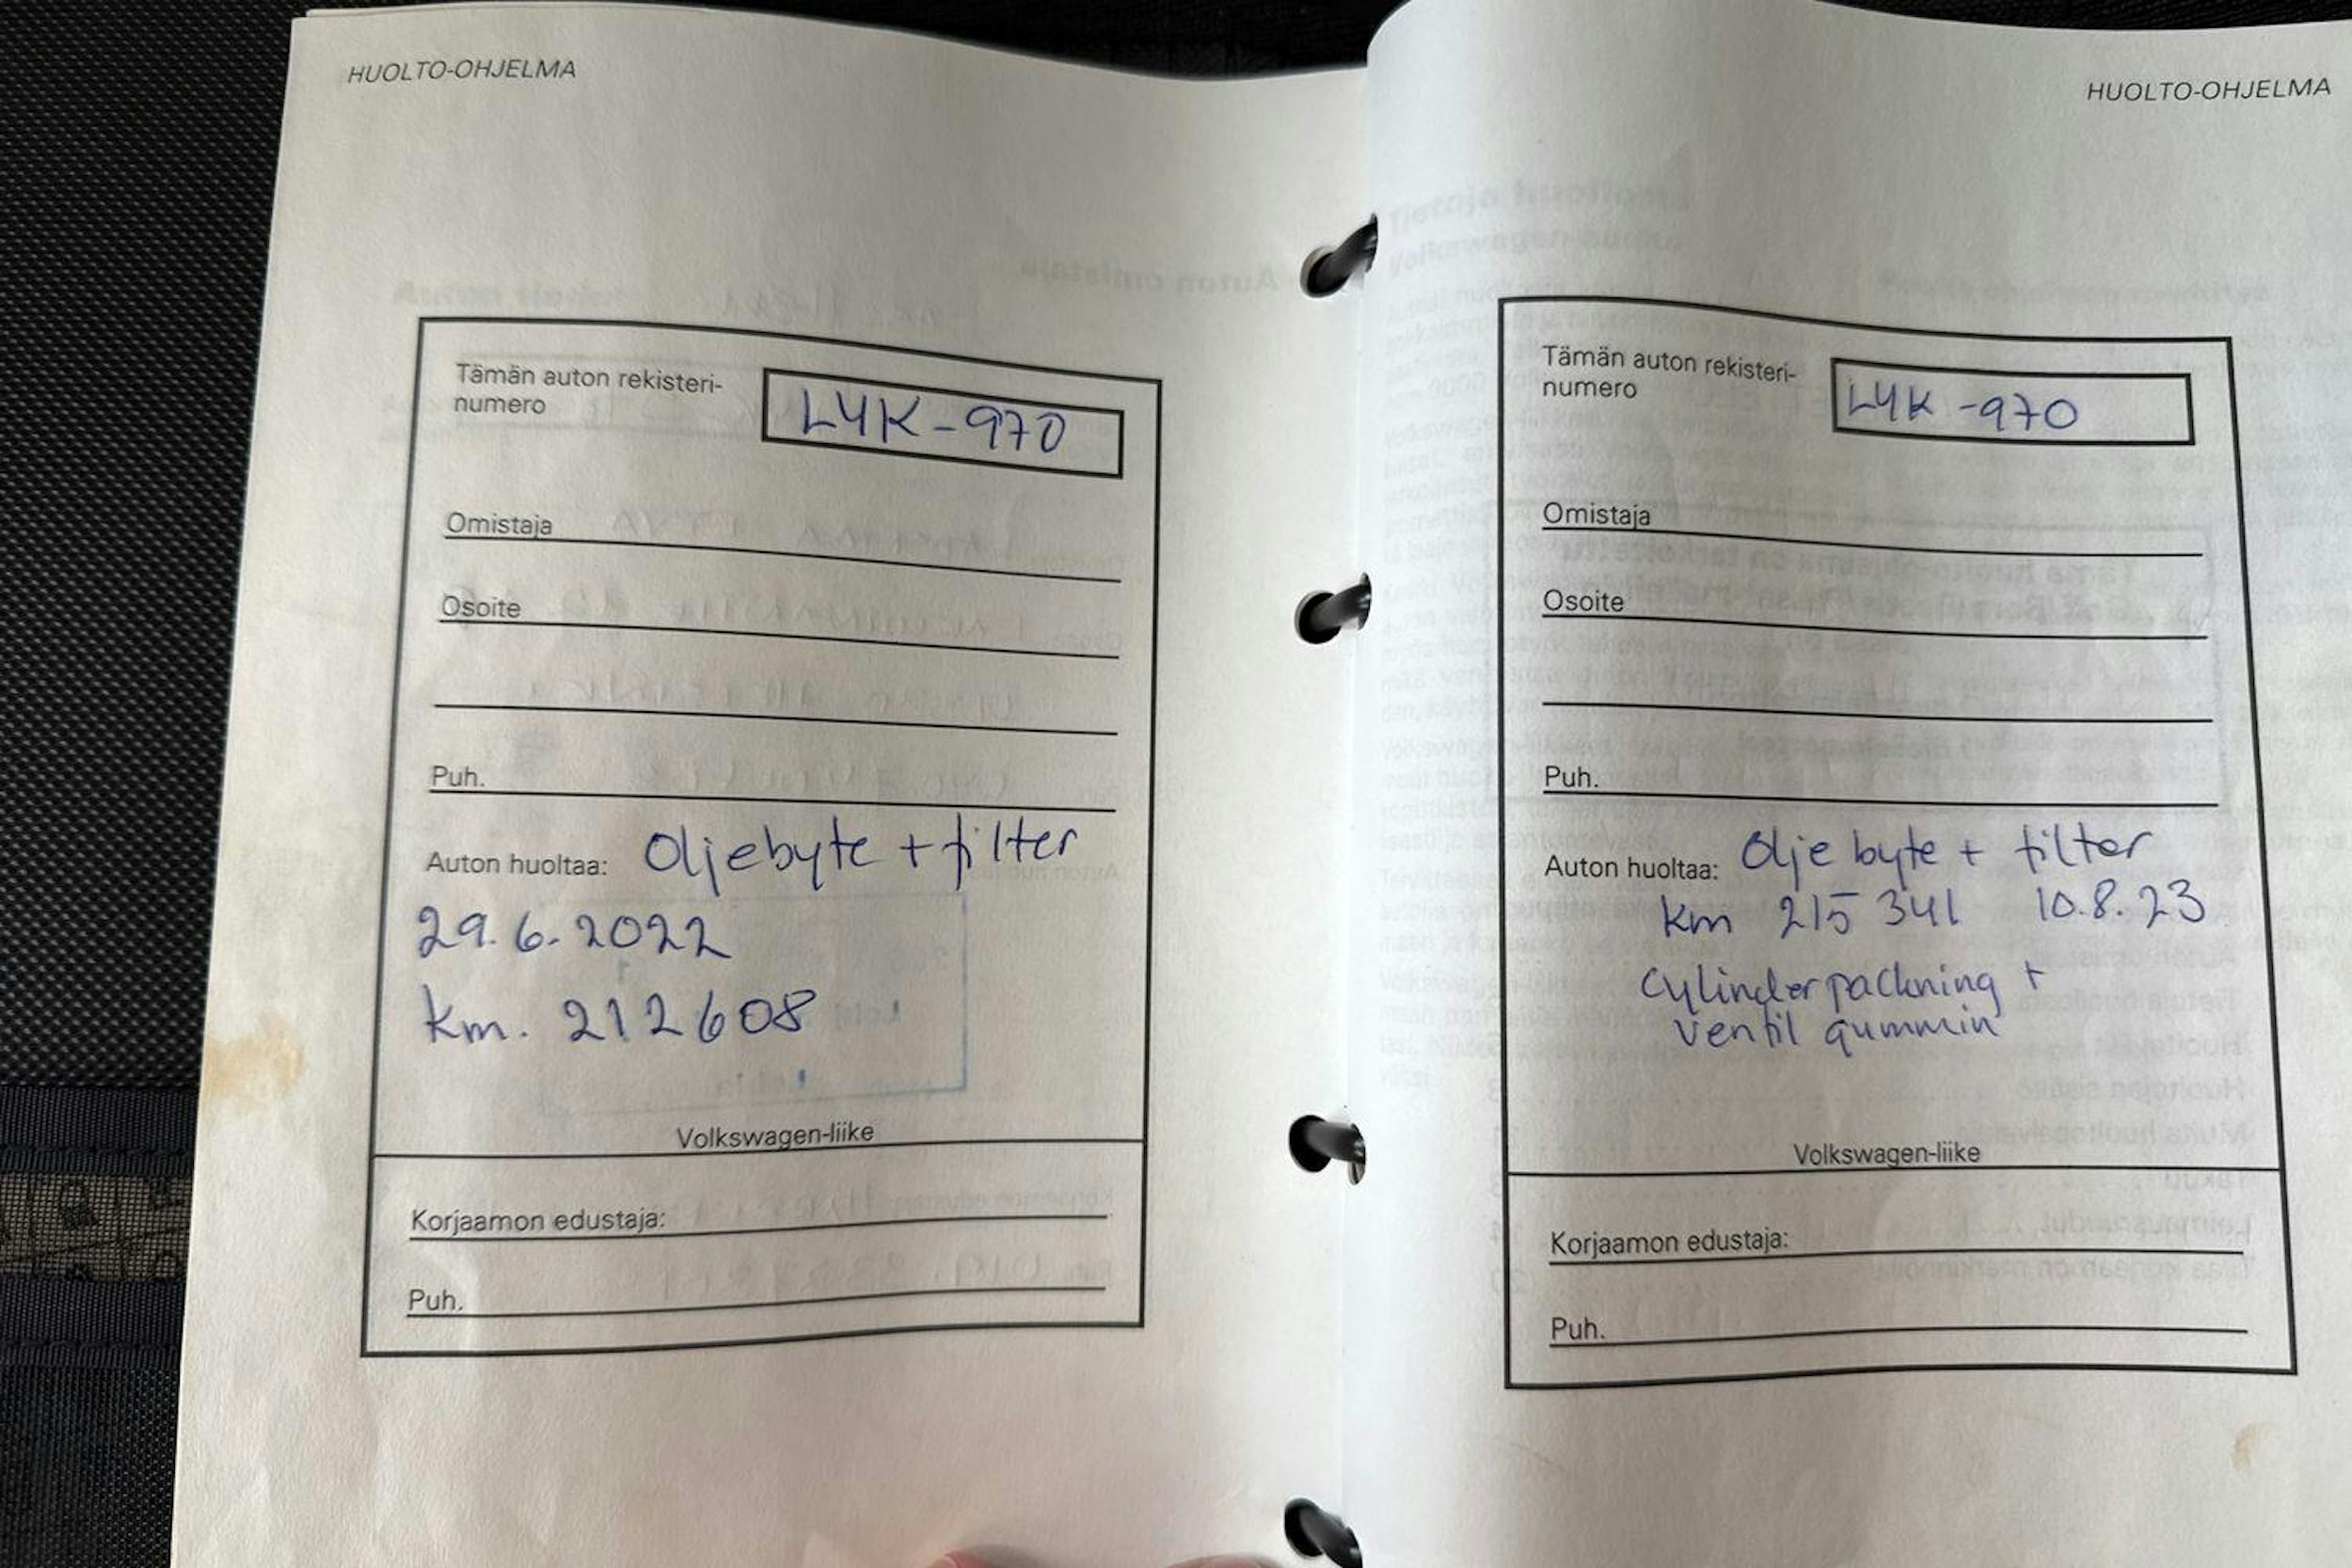 HUOLTO-OHJELMA
Tämän auton rekisteri-
numero
LYK-970
Omistaja
Osoite
Puh.
Auton huoltaa: Oljebyte + filter
29.6.2022
km. 212608
Volkswagen-liike
Korjaamon edustaja:
Puh.
HUOLTO-OHJELMA
Tämän auton rekisteri-
numero
LYK-970
Omistaja
Osoite
Puh.
Auton huoltaa: Olje byte + filter
km 215 341 10.8.23
Cylinderpackning +
Ventil gummin
Volkswagen-liike
Korjaamon edustaja:
Puh.